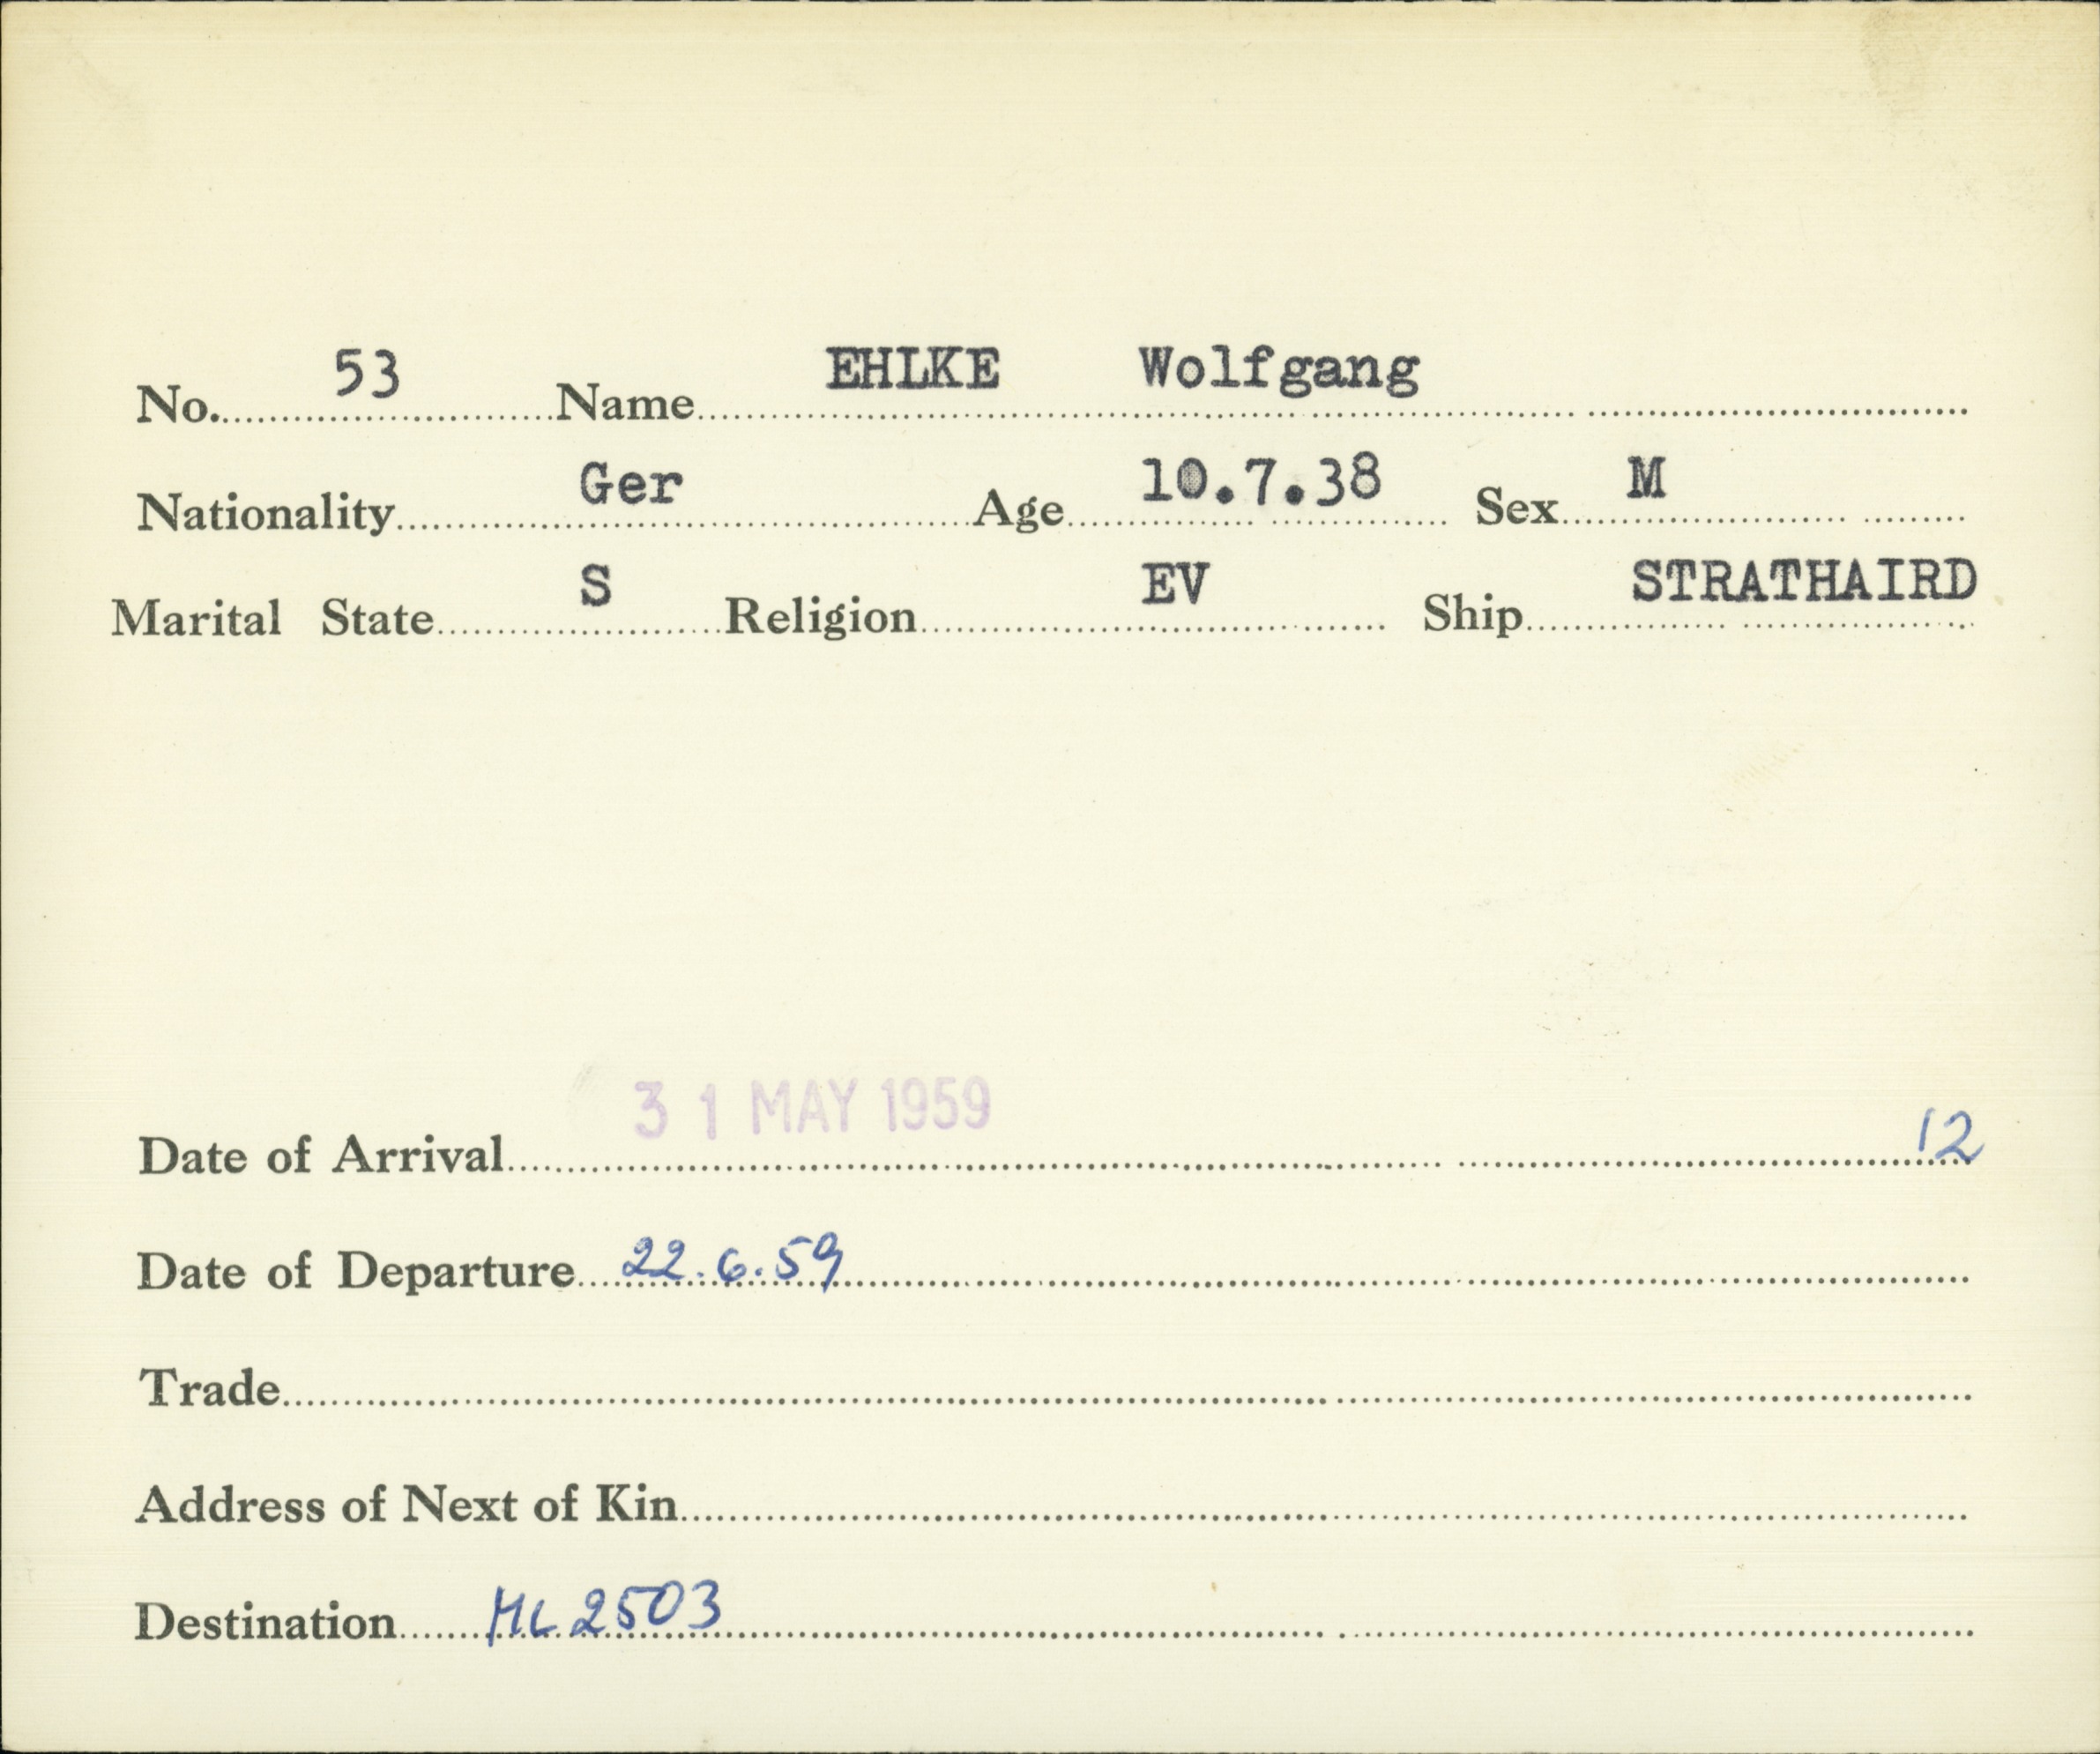 No. 53 Name EHLKE Wolfgang
Nationality Ger Age 10.7.38 Sex M
Marital State S Religion EV Ship STRATHAIRD
Date of Arrival 31 MAY 1959 12
Date of Departure 22.6.59
Trade
Address of Next of Kin
Destination ML 2503